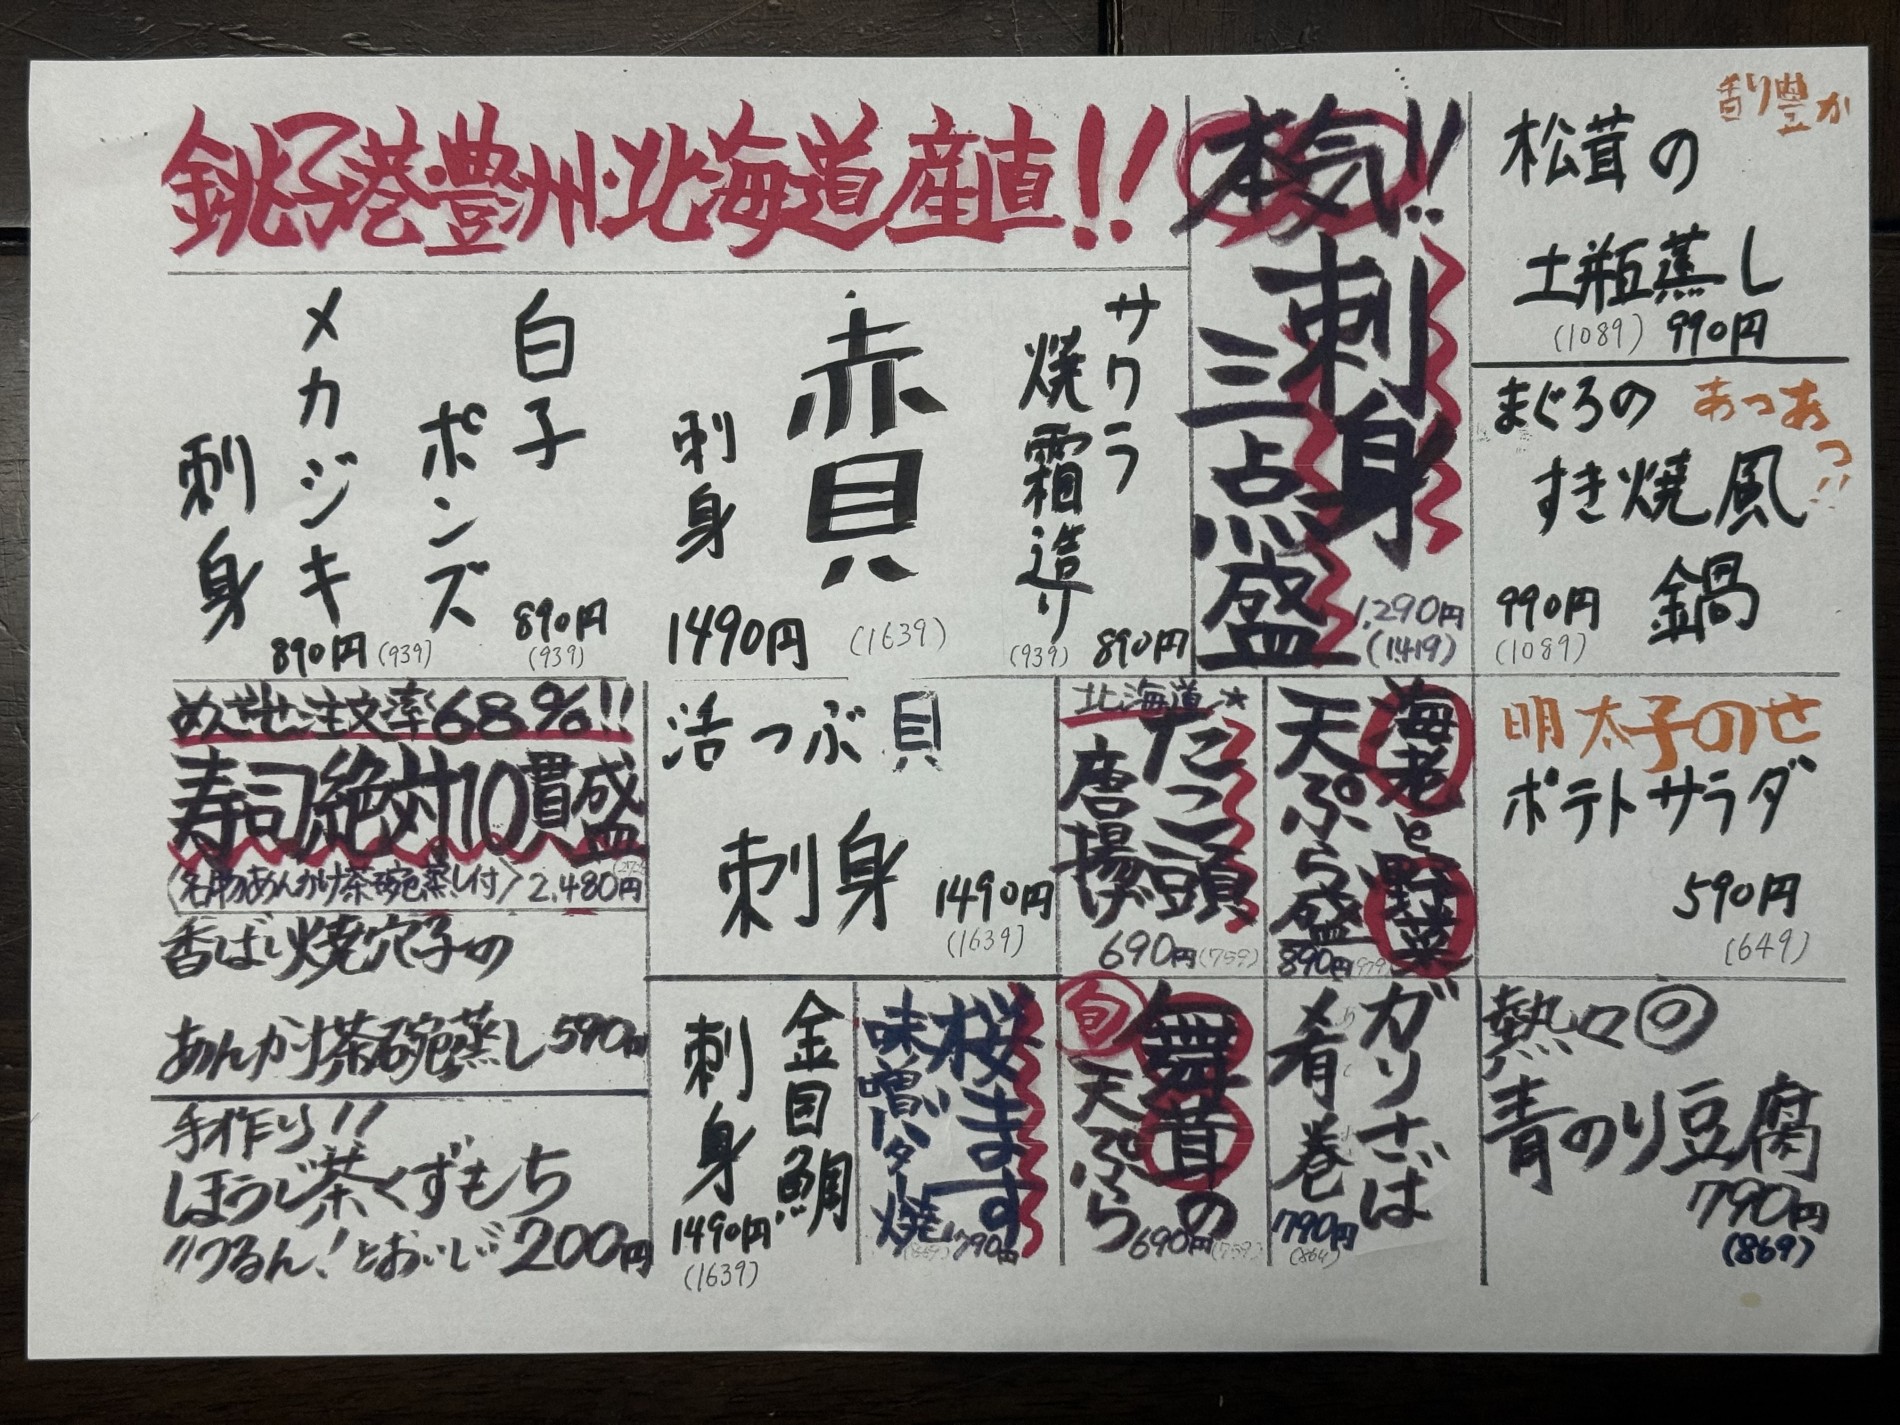 銚子港・豊州・北海道産直!!
本気!!
刺身
三点盛
1,290円
(1419)
香り豊か
松茸の
土瓶蒸し
(1089) 990円
まぐろの
あつあつ!!
すき焼風
鍋
990円
(1089)
サワラ
焼霜造り
(939) 890円
赤貝
刺身
1490円 (1639)
白子
ポンズ
890円
(939)
メカジキ
刺身
890円 (939)
めざせ注文率68%!!
寿司絶対10貫盛
〈名物あんかけ茶碗蒸し付〉2,480円
香ばし焼穴子の
あんかけ茶碗蒸し 590円
手作り!!
ほうじ茶くずもち
"つるん!とおいしい 200円
活つぶ貝
刺身
1490円
(1639)
北海道☆
たこ頭
唐揚げ
690円(759)
海老と野菜
天ぷら盛
890円(979)
明太子のせ
ポテトサラダ
590円
(649)
金目鯛
刺身
1490円
(1639)
桜ます
味噌バター焼
(869) 790円
旬
舞茸の
天ぷら
690円(759)
ガリさば
〆肴巻
790円
熱々の
青のり豆腐
790円
(869)